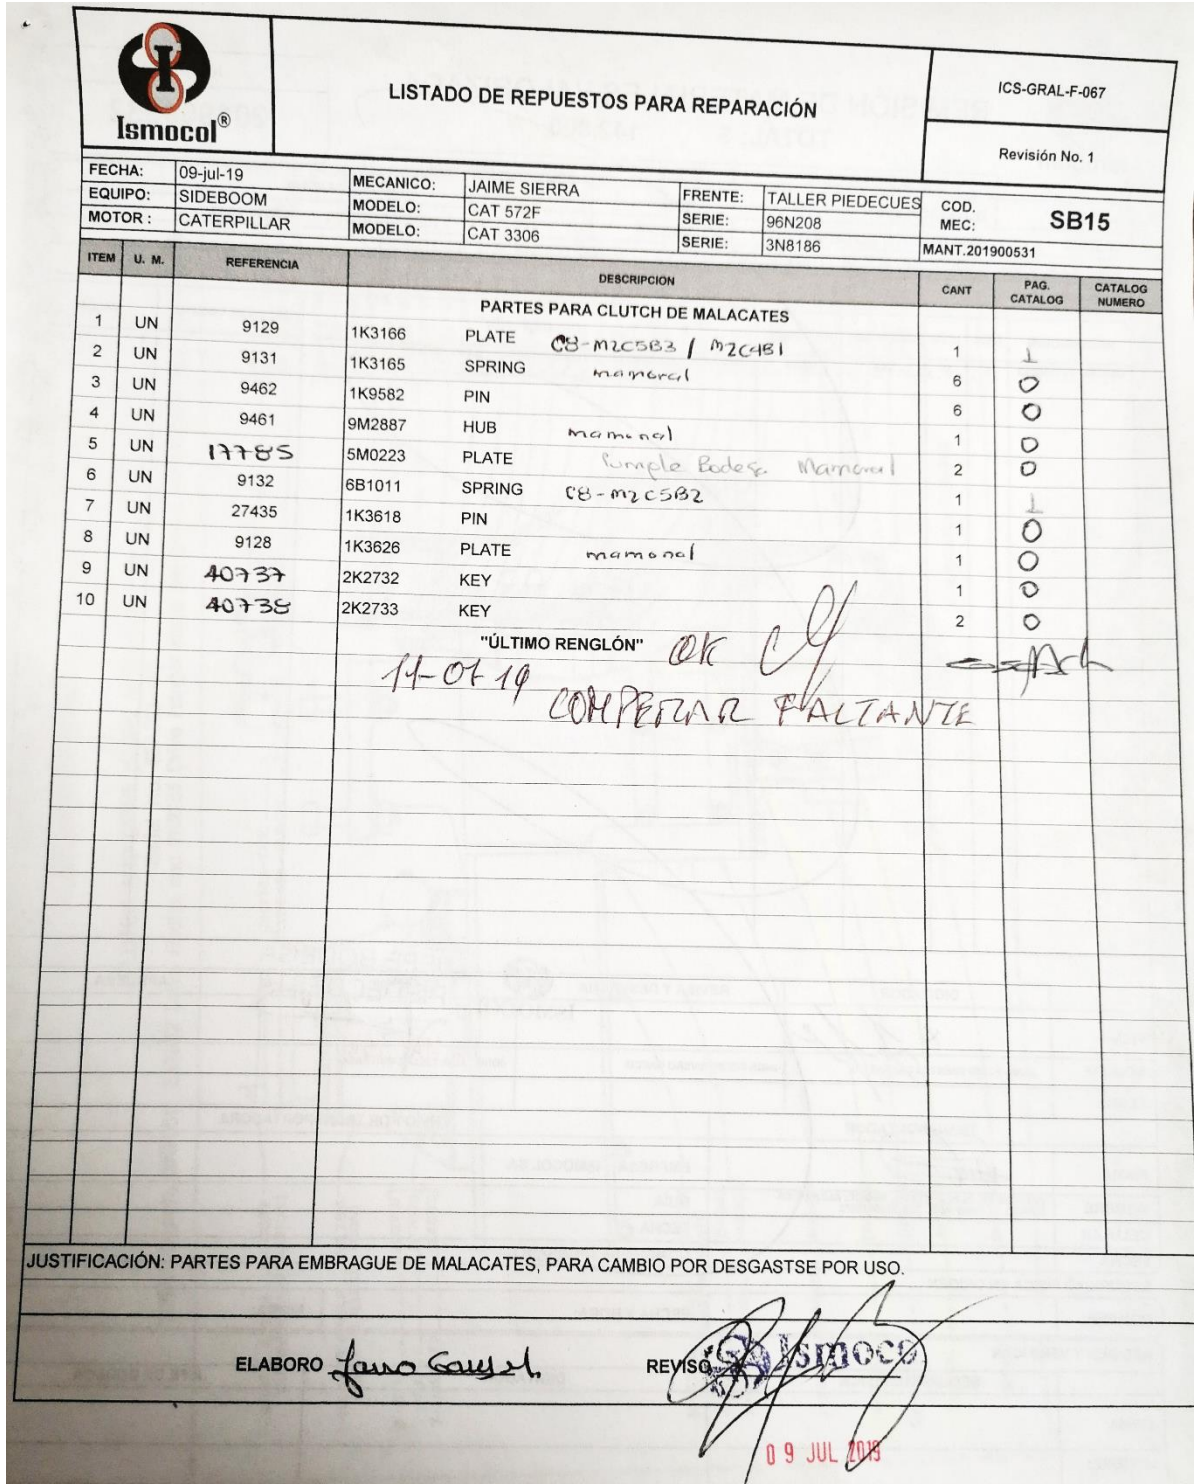 Ismocol®
LISTADO DE REPUESTOS PARA REPARACIÓN
ICS-GRAL-F-067
Revisión No. 1
FECHA: 09-jul-19 MECANICO: JAIME SIERRA FRENTE: TALLER PIEDECUES COD. MEC: SB15
EQUIPO: SIDEBOOM MODELO: CAT 572F SERIE: 96N208
MOTOR : CATERPILLAR MODELO: CAT 3306 SERIE: 3N8186 MANT.201900531
ITEM U. M. REFERENCIA DESCRIPCION CANT PAG. CATALOG CATALOG NUMERO
PARTES PARA CLUTCH DE MALACATES
1 UN 9129 1K3166 PLATE C8-M2C5B3 / M2C4B1 1 1
2 UN 9131 1K3165 SPRING mamonal 6 0
3 UN 9462 1K9582 PIN 6 0
4 UN 9461 9M2887 HUB mamonal 1 0
5 UN 17785 5M0223 PLATE Bodega Mamonal 2 0
6 UN 9132 6B1011 SPRING C8-M2C5B2 1 1
7 UN 27435 1K3618 PIN 1 0
8 UN 9128 1K3626 PLATE mamonal 1 0
9 UN 40737 2K2732 KEY 1 0
10 UN 40738 2K2733 KEY 2 0
"ÚLTIMO RENGLÓN" OK
11-07-19
COMPERAR FALTANTE
JUSTIFICACIÓN: PARTES PARA EMBRAGUE DE MALACATES, PARA CAMBIO POR DESGASTSE POR USO.
ELABORO
REVISO Ismoco
09 JUL 2019